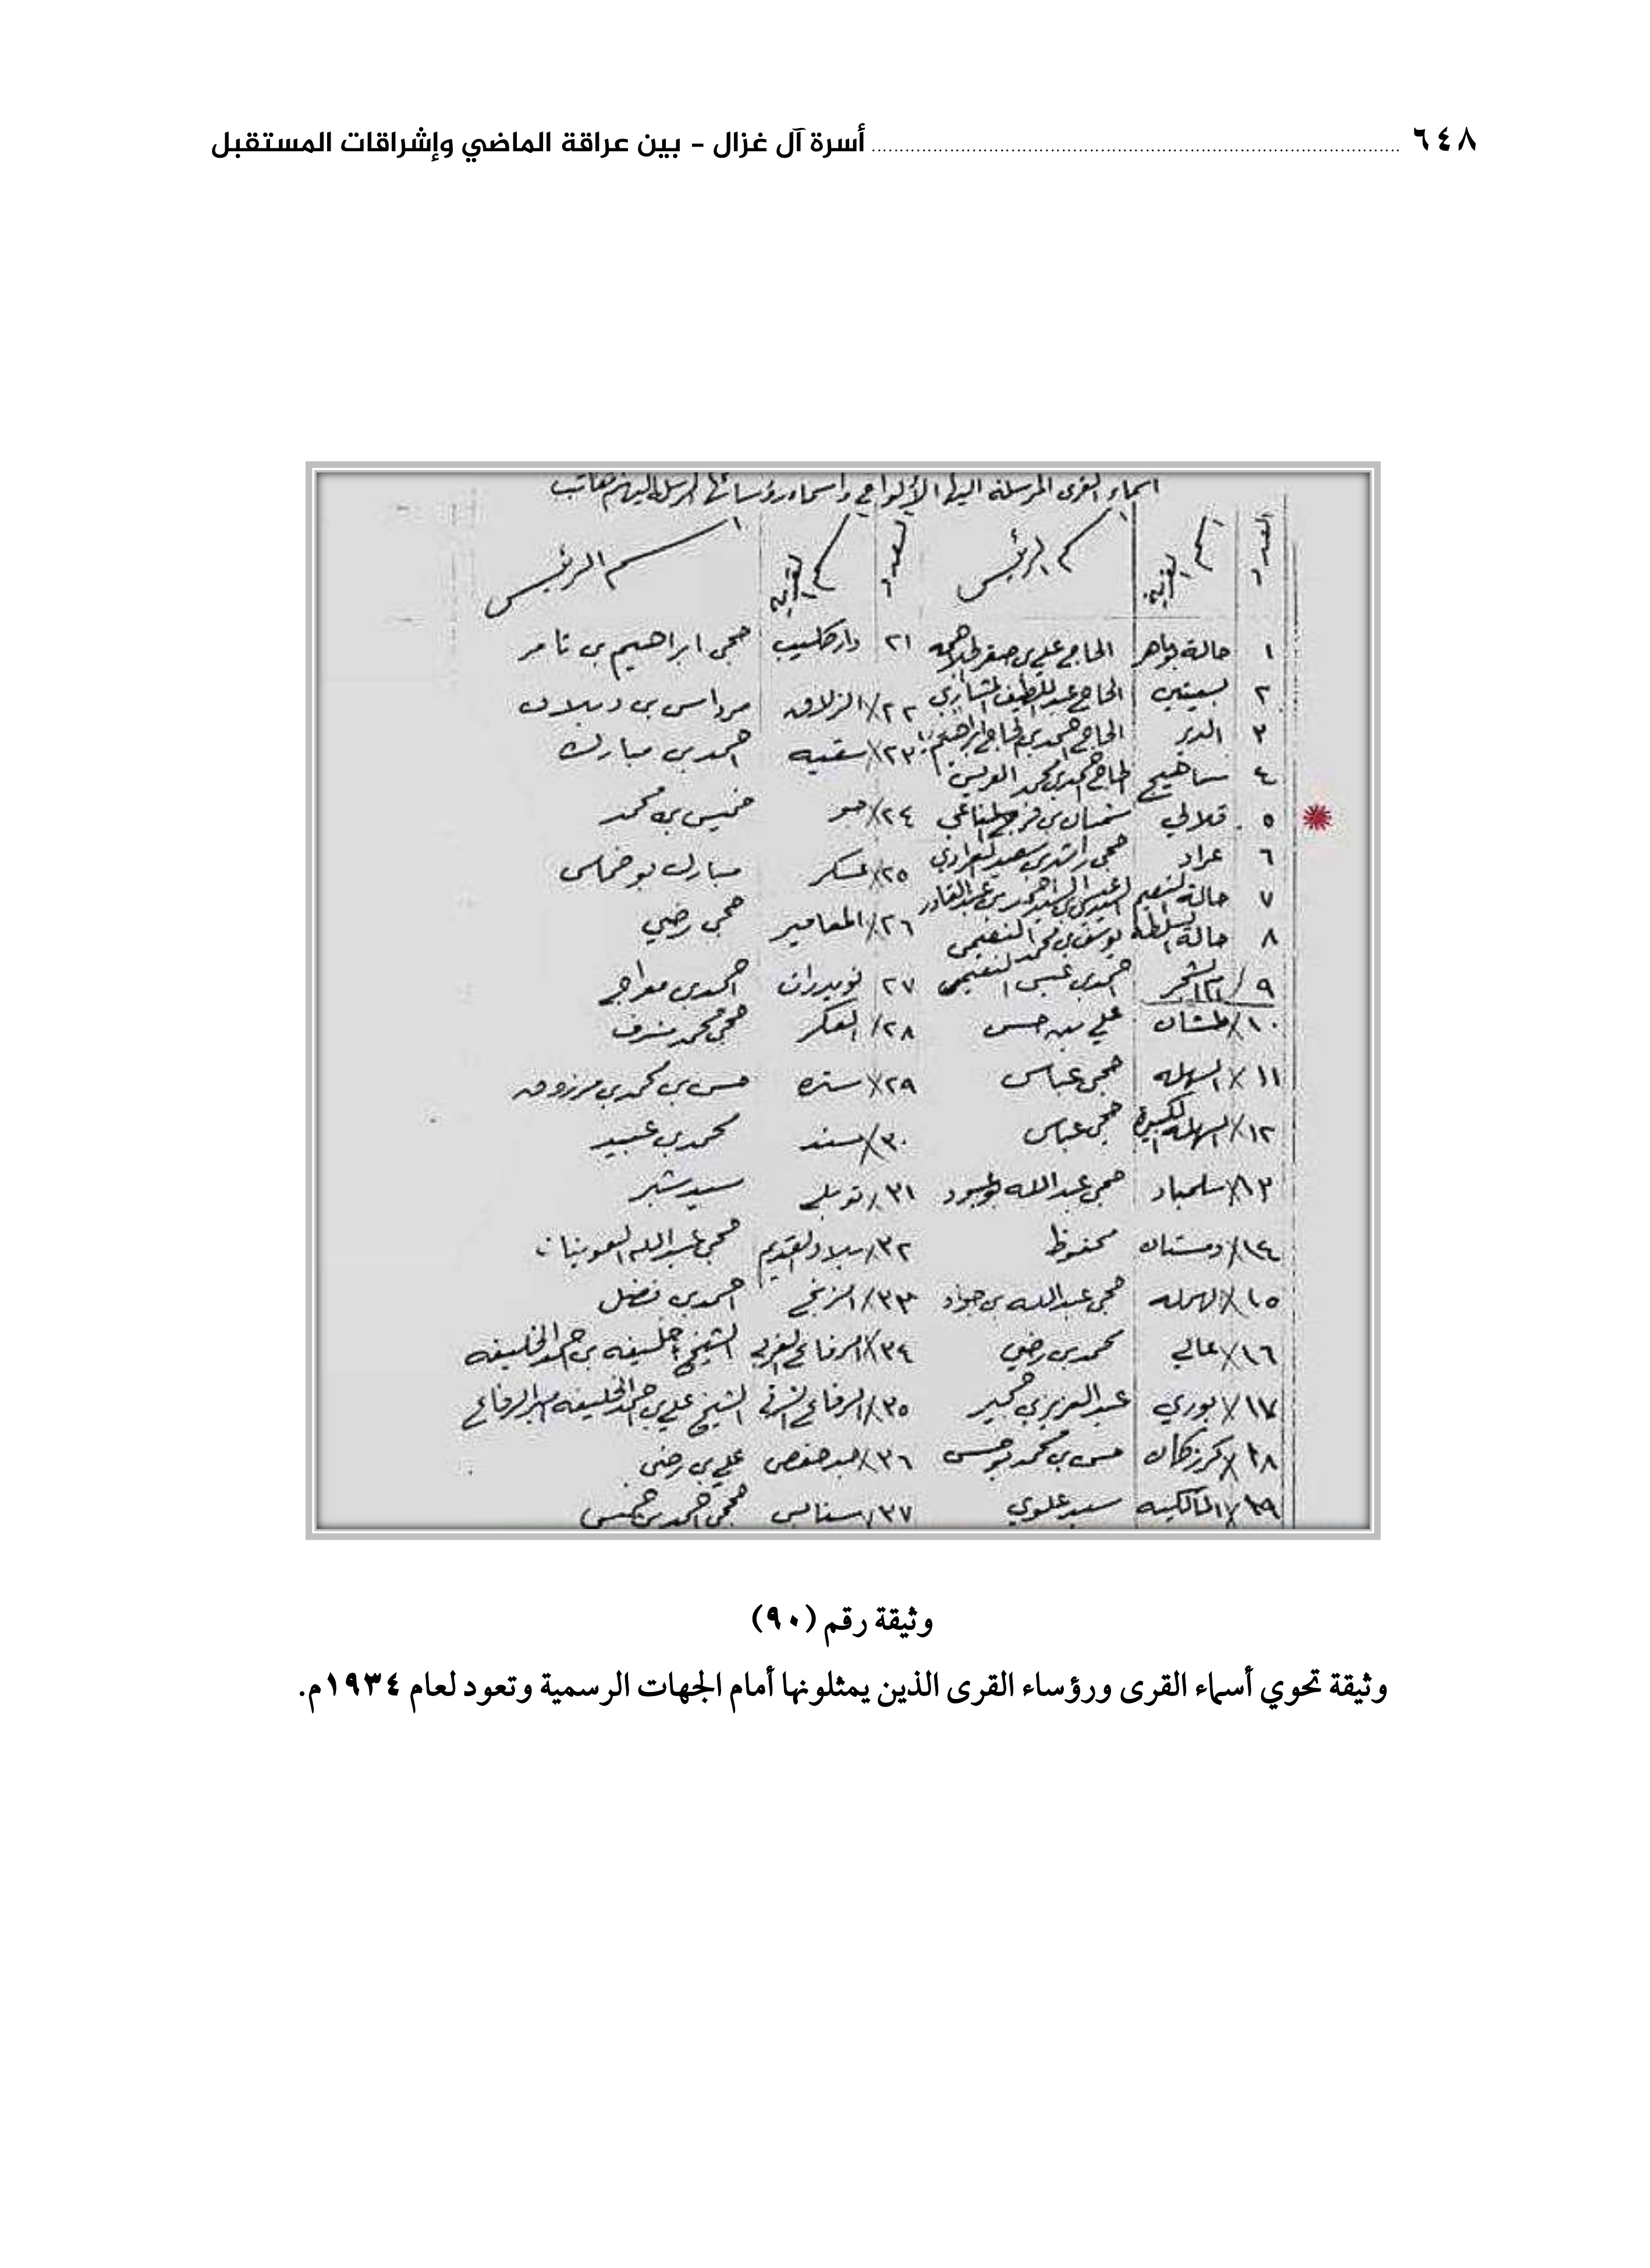 ٦٤٨ أسرة آل غزال - بين عراقة الماضي وإشراقات المستقبل
اسماء القرى المرسلة اليها الألواح واسماء رؤسائها المرسل اليهم
العدد اسم القرية اسم الرئيس العدد اسم القرية اسم الرئيس
١ حالة بوماهر الحاج علي بن صقر ٢١ داركليب حجي ابراهيم بن تامر
٢ بسيتين الحاج عبداللطيف ٢٢ الزلاق مرداس بن دبلان
٣ الدير الحاج احمد بن الحاج ابراهيم ٢٣ سفيه احمد بن مبارك
٤ سماهيج الحاج احمد بن محمد
٥ قلالي شعبان بن فرج المناعي ٢٤ جو خميس بن محمد
٦ عراد حجي راشد بن سعيد العرادي ٢٥ عسكر مبارك بوخماس
٧ حالة النعيم السيد احمد بن عبدالقادر
٨ حالة السلطه يوسف بن محمد النعيمي ٢٦ المعامير حجي رضي
٩ ام الشجر احمد بن عيسى النعيمي ٢٧ نويدرات احمد بن
١٠ طشان علي بن حسن ٢٨ العكر حجي محمد مشرف
١١ السهله حجي عباس ٢٩ ستره حسن بن محمد بن مرزوق
١٢ السهله الكبيرة حجي عباس ٣٠ سند محمد بن عبيد
١٣ سلمباد حجي عبدالله ٣١ توبلي سيد شبر
١٤ دمستان محفوظ ٣٢ بلاد القديم حجي عبدالله العوينات
١٥ الهمله حجي عبدالله بن جواد ٣٣ الزنج احمد بن فضل
١٦ عالي محمد بن رضي ٣٤ الرفاع الغربي الشيخ خليفه بن حمد الخليفه
١٧ بوري عبدالعزيز بن حجير ٣٥ الرفاع الشرقي الشيخ علي بن حمد الخليفه امير الرفاع
١٨ كرزكان حسن بن محمد بوحسن ٣٦ جدحفص علي بن رضي
١٩ المالكيه سيد علوي ٣٧ سنابس حجي احمد بن خميس
وثيقة رقم (٩٠)
وثيقة تحوي أسماء القرى ورؤساء القرى الذين يمثلونها أمام الجهات الرسمية وتعود لعام ١٩٣٤م.